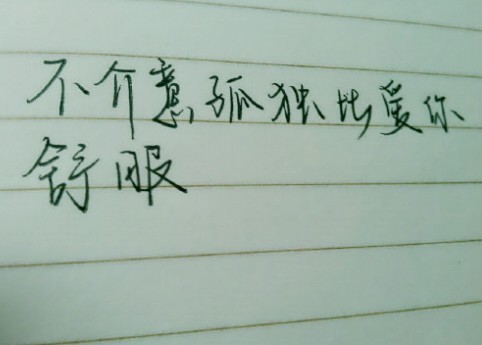 不介意孤独比爱你
舒服